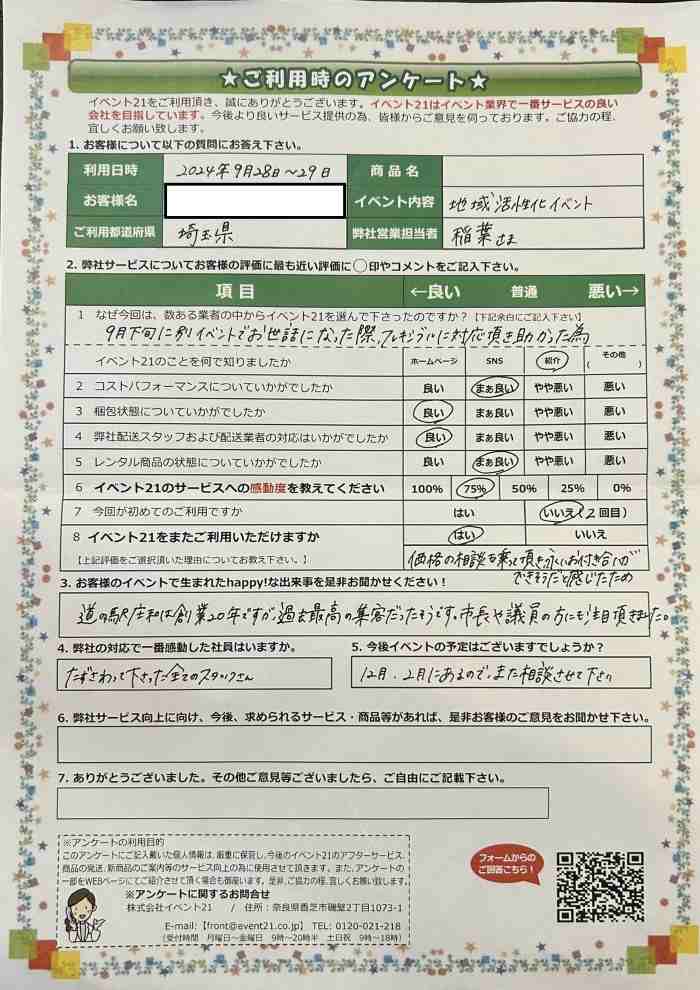 ★ご利用時のアンケート★
イベント21をご利用頂き、誠にありがとうございます。イベント21はイベント業界で一番サービスの良い
会社を目指しています。今後より良いサービス提供の為、皆様からご意見を伺っております。ご協力の程、
宜しくお願い致します。
1. お客様について以下の質問にお答え下さい。
利用日時 2024年9月28日～29日 商品名
お客様名 イベント内容 地域活性化イベント
ご利用都道府県 埼玉県 弊社営業担当者 稲葉さま
2. 弊社サービスについてお客様の評価に最も近い評価に◯印やコメントをご記入下さい。
項目 ←良い 普通 悪い→
1 なぜ今回は、数ある業者の中からイベント21を選んで下さったのですか？【下記余白にご記入下さい】
9月下旬に別イベントでお世話になった際、フレキシブルに対応頂き助かった為
イベント21のことを何で知りましたか ホームページ SNS 紹介 その他 ( )
2 コストパフォーマンスについていかがでしたか 良い まぁ良い やや悪い 悪い
3 梱包状態についていかがでしたか 良い まぁ良い やや悪い 悪い
4 弊社配送スタッフおよび配送業者の対応はいかがでしたか 良い まぁ良い やや悪い 悪い
5 レンタル商品の状態についていかがでしたか 良い まぁ良い やや悪い 悪い
6 イベント21のサービスへの感動度を教えてください 100% 75% 50% 25% 0%
7 今回が初めてのご利用ですか はい いいえ(2回目)
8 イベント21をまたご利用いただけますか はい いいえ
【上記評価をご選択頂いた理由についてお教え下さい。】 価格の相談も乗って頂き、永いお付き合いが
できそうだと感じたため
3. お客様のイベントで生まれたhappy!な出来事を是非お聞かせください！
道の駅庄和は創業20年ですが、過去最高の集客だったそうです。市長や議員の方にも注目頂きました。
4. 弊社の対応で一番感動した社員はいますか。
たずさわって下さった全てのスタッフさん
5. 今後イベントの予定はございますでしょうか？
12月、2月にあるので、また相談させて下さい
6. 弊社サービス向上に向け、今後、求められるサービス・商品等があれば、是非お客様のご意見をお聞かせ下さい。
7. ありがとうございました。その他ご意見等ございましたら、ご自由にご記載下さい。
※アンケートの利用目的
このアンケートにご記入戴いた個人情報は、厳重に保管し、今後のイベント21のアフターサービス、
商品の発送、新商品のご案内等のサービス向上の為に使用させて頂きます。また、アンケートの
一部をWEBページにてご紹介させて頂く場合も御座います。是非、ご協力の程、宜しくお願い致します。
※アンケートに関するお問合せ
株式会社イベント21 / 住所：奈良県香芝市磯壁2丁目1073-1
E-mail:【front@event21.co.jp】 TEL: 0120-021-218
(受付時間 月曜日～金曜日 9時～20時半 土日祝 9時～18時)
フォームからの
ご回答こちら！